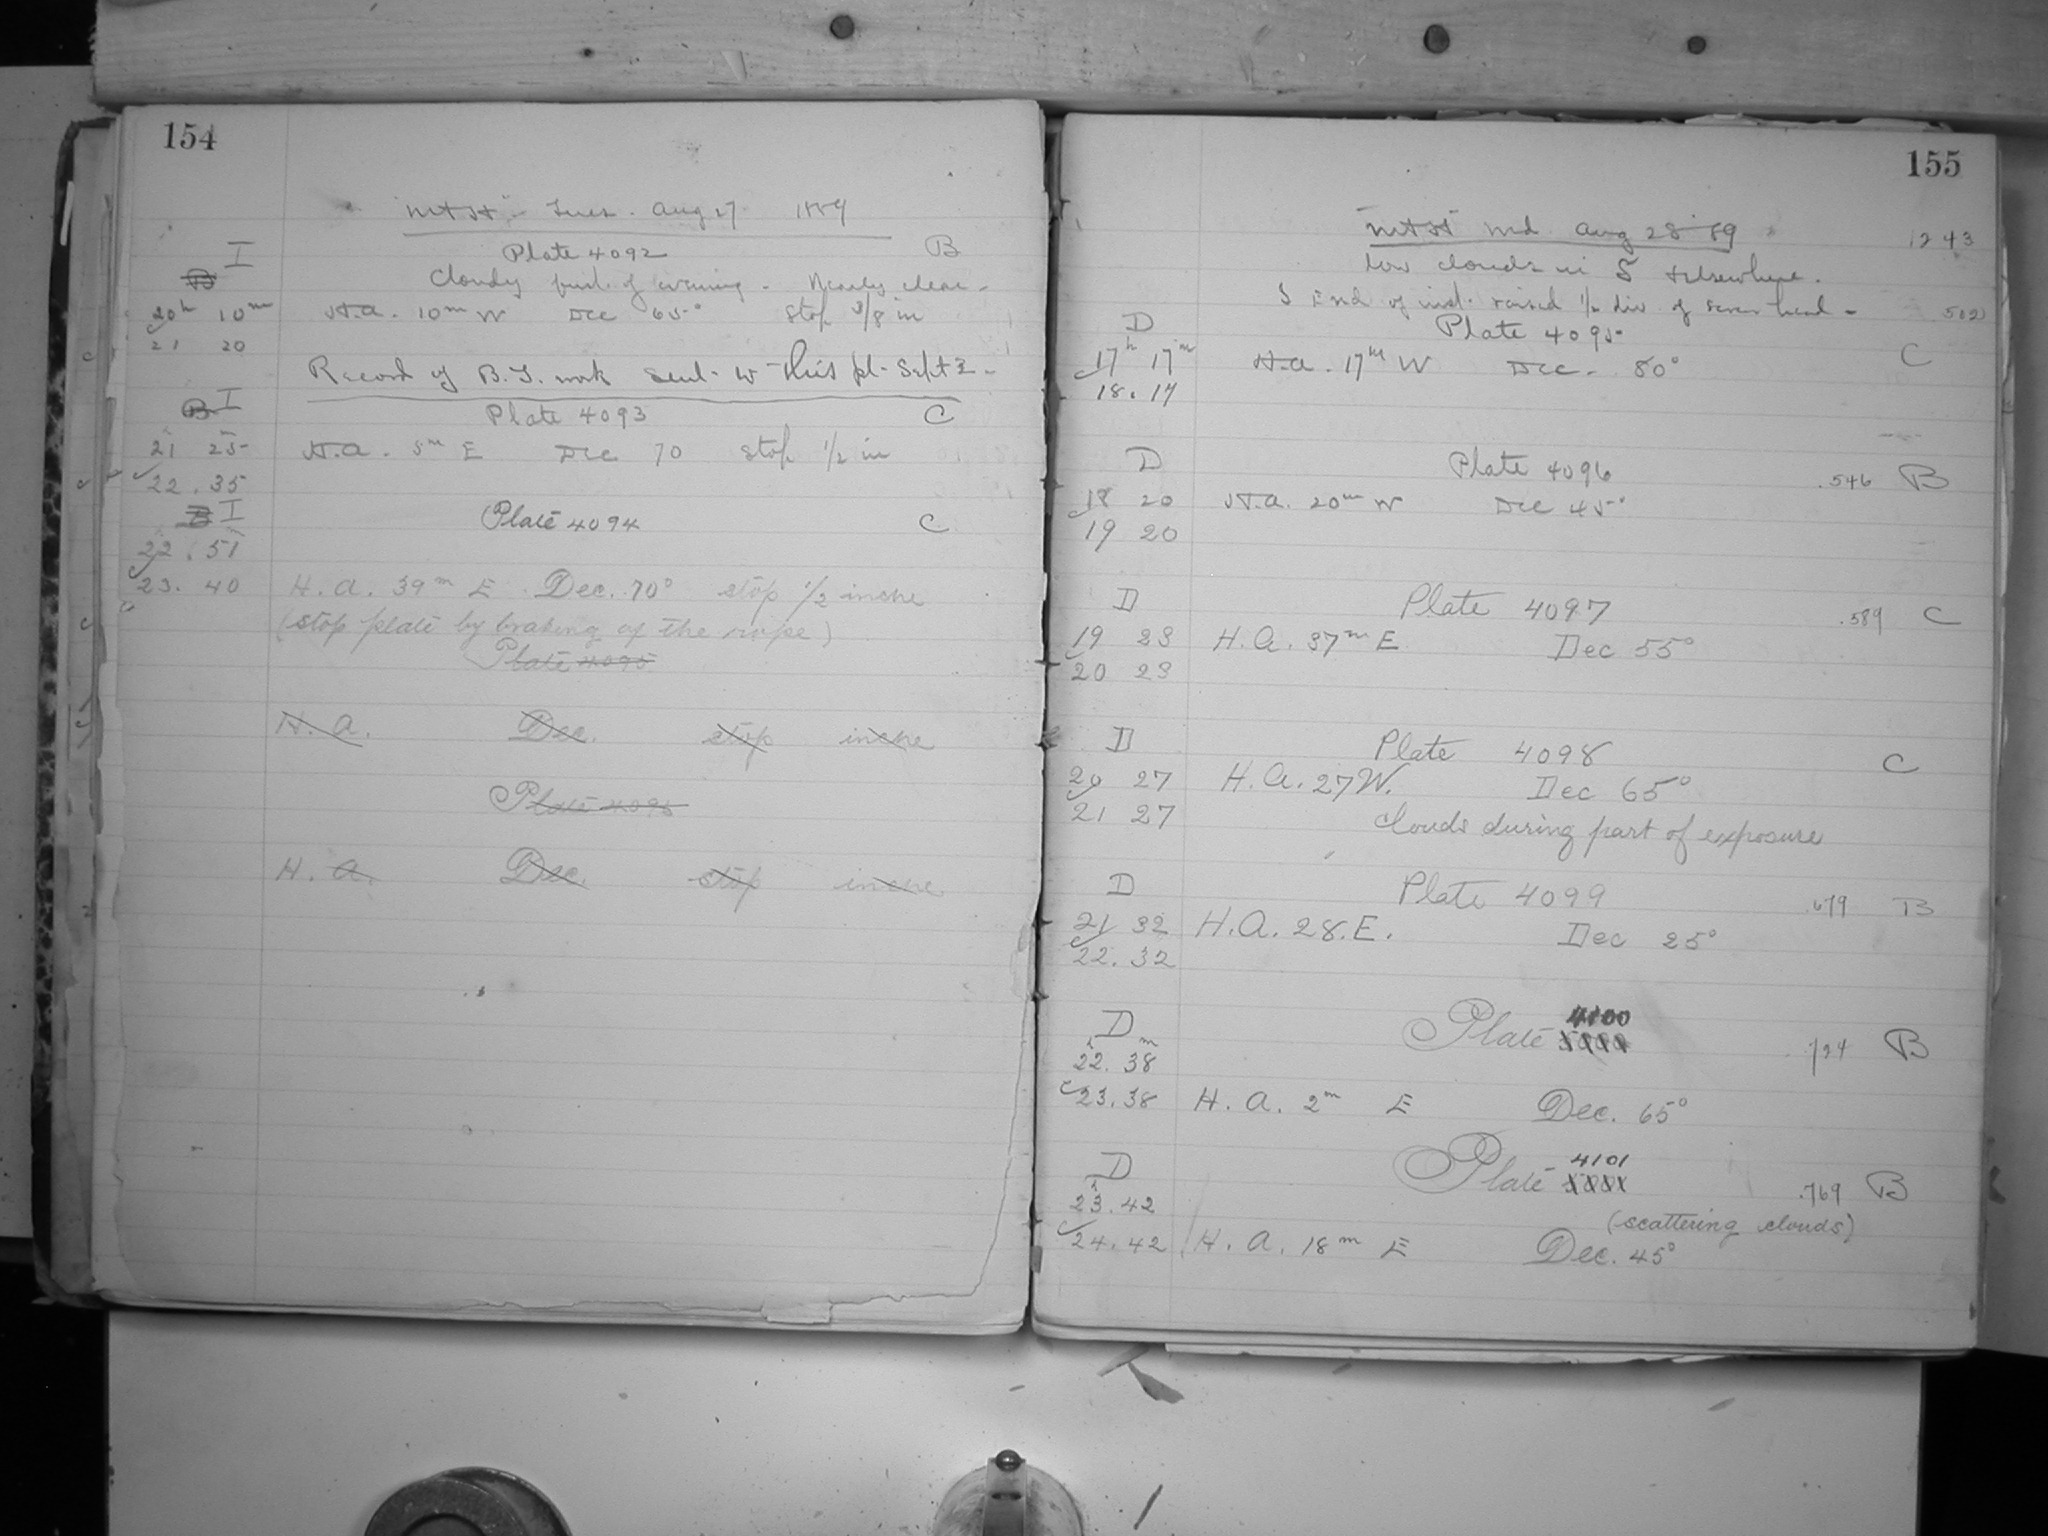 154
"Mt H" - Tues. Aug 27 1889
I
Plate 4092 B
B
Cloudy part of evening - Nearly clear -
20h 10m H.A. 10m W Dec 65° Stop 3/8 in
21 20
Record of B.J. work sent w this pl. Sept 2 -
B I
Plate 4093 C
21 25 H.A. 5m E Dec 70 Stop 1/2 in
22.35
B I
Plate 4094 C
22.51
23.40 H.A. 39m E Dec. 70° stop 1/2 inche
(stop plate by braking of the rope)
Plate 4095
H.A. Dec. stop inche
Plate 4096
H.A. Dec. stop inche
155
"Mt H" Wd Aug 28 89 1243
low clouds in S & elsewhere.
S End of inst. raised 1/2 div of screw head -
D
Plate 4095 502
17h 17m H.A. 17m W Dec - 80° C
18.17
D
Plate 4096 .546 B
18 20 H.A. 20m W Dec 45°
19 20
D
Plate 4097 .589 C
19 23 H.A. 37m E Dec 55°
20 23
D
Plate 4098 C
20 27 H.A. 27 W. Dec 65°
21 27 clouds during part of exposure
D
Plate 4099 .679 B
21 32 H.A. 28.E. Dec 25°
22.32
4100
D
Plate .724 B
22.38m
23.38 H.A. 2m E Dec. 65°
4101
D
Plate .769 B
23.42
(scattering clouds)
24.42 H.A. 18m E Dec. 45°